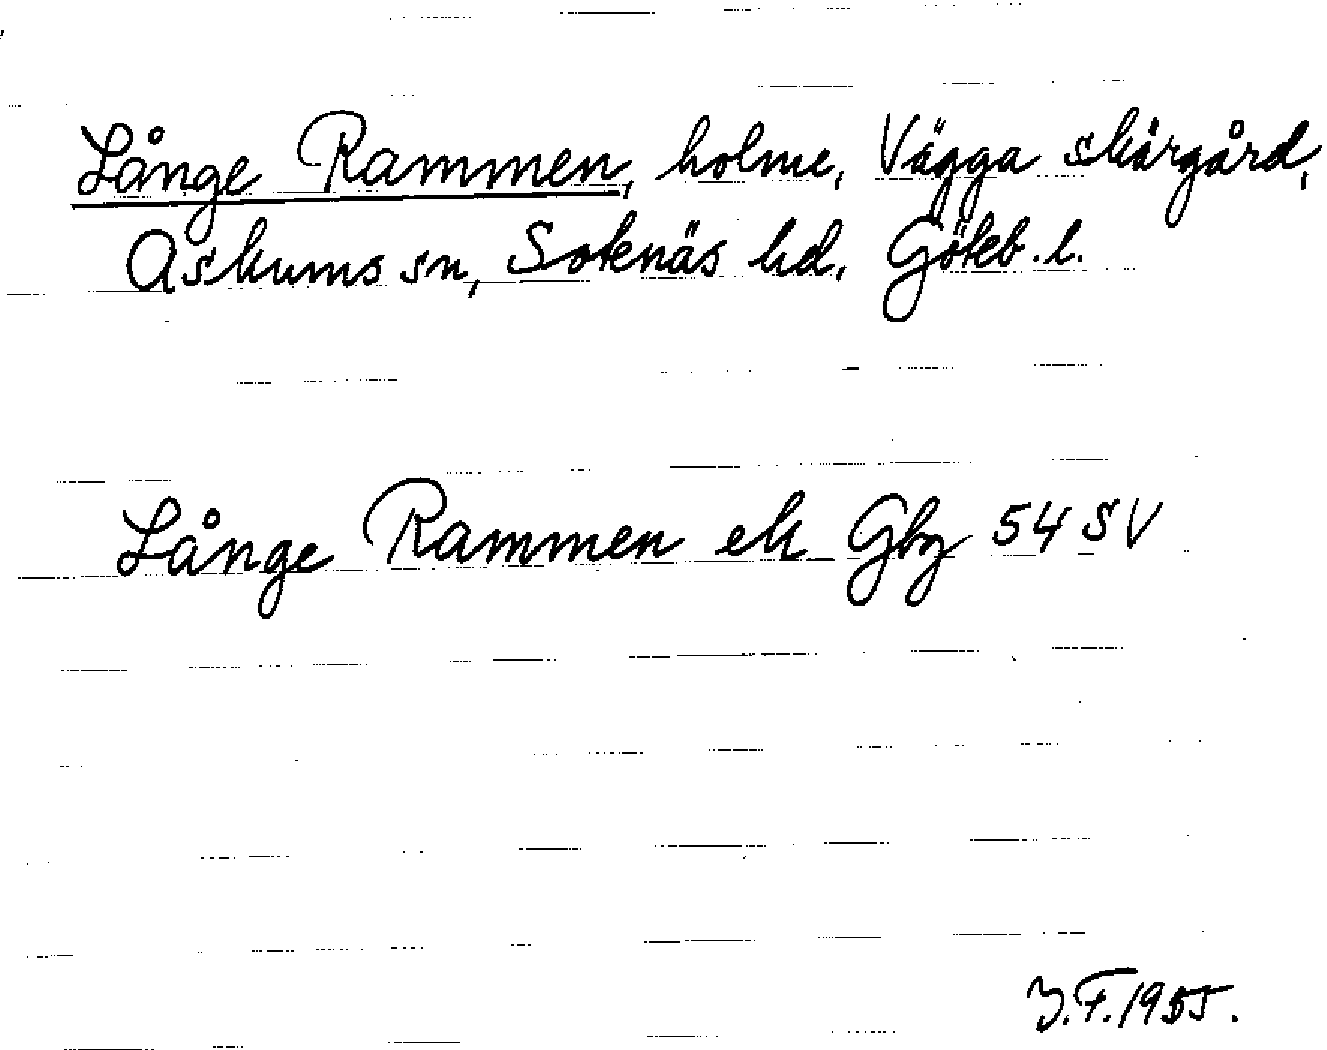 Långe Rammen, holme, Vägga skärgård,
Askums sn, Sotenäs hd, Göteb. l.
Långe Rammen ek Gbg 54 SV
Y.F. 1955.